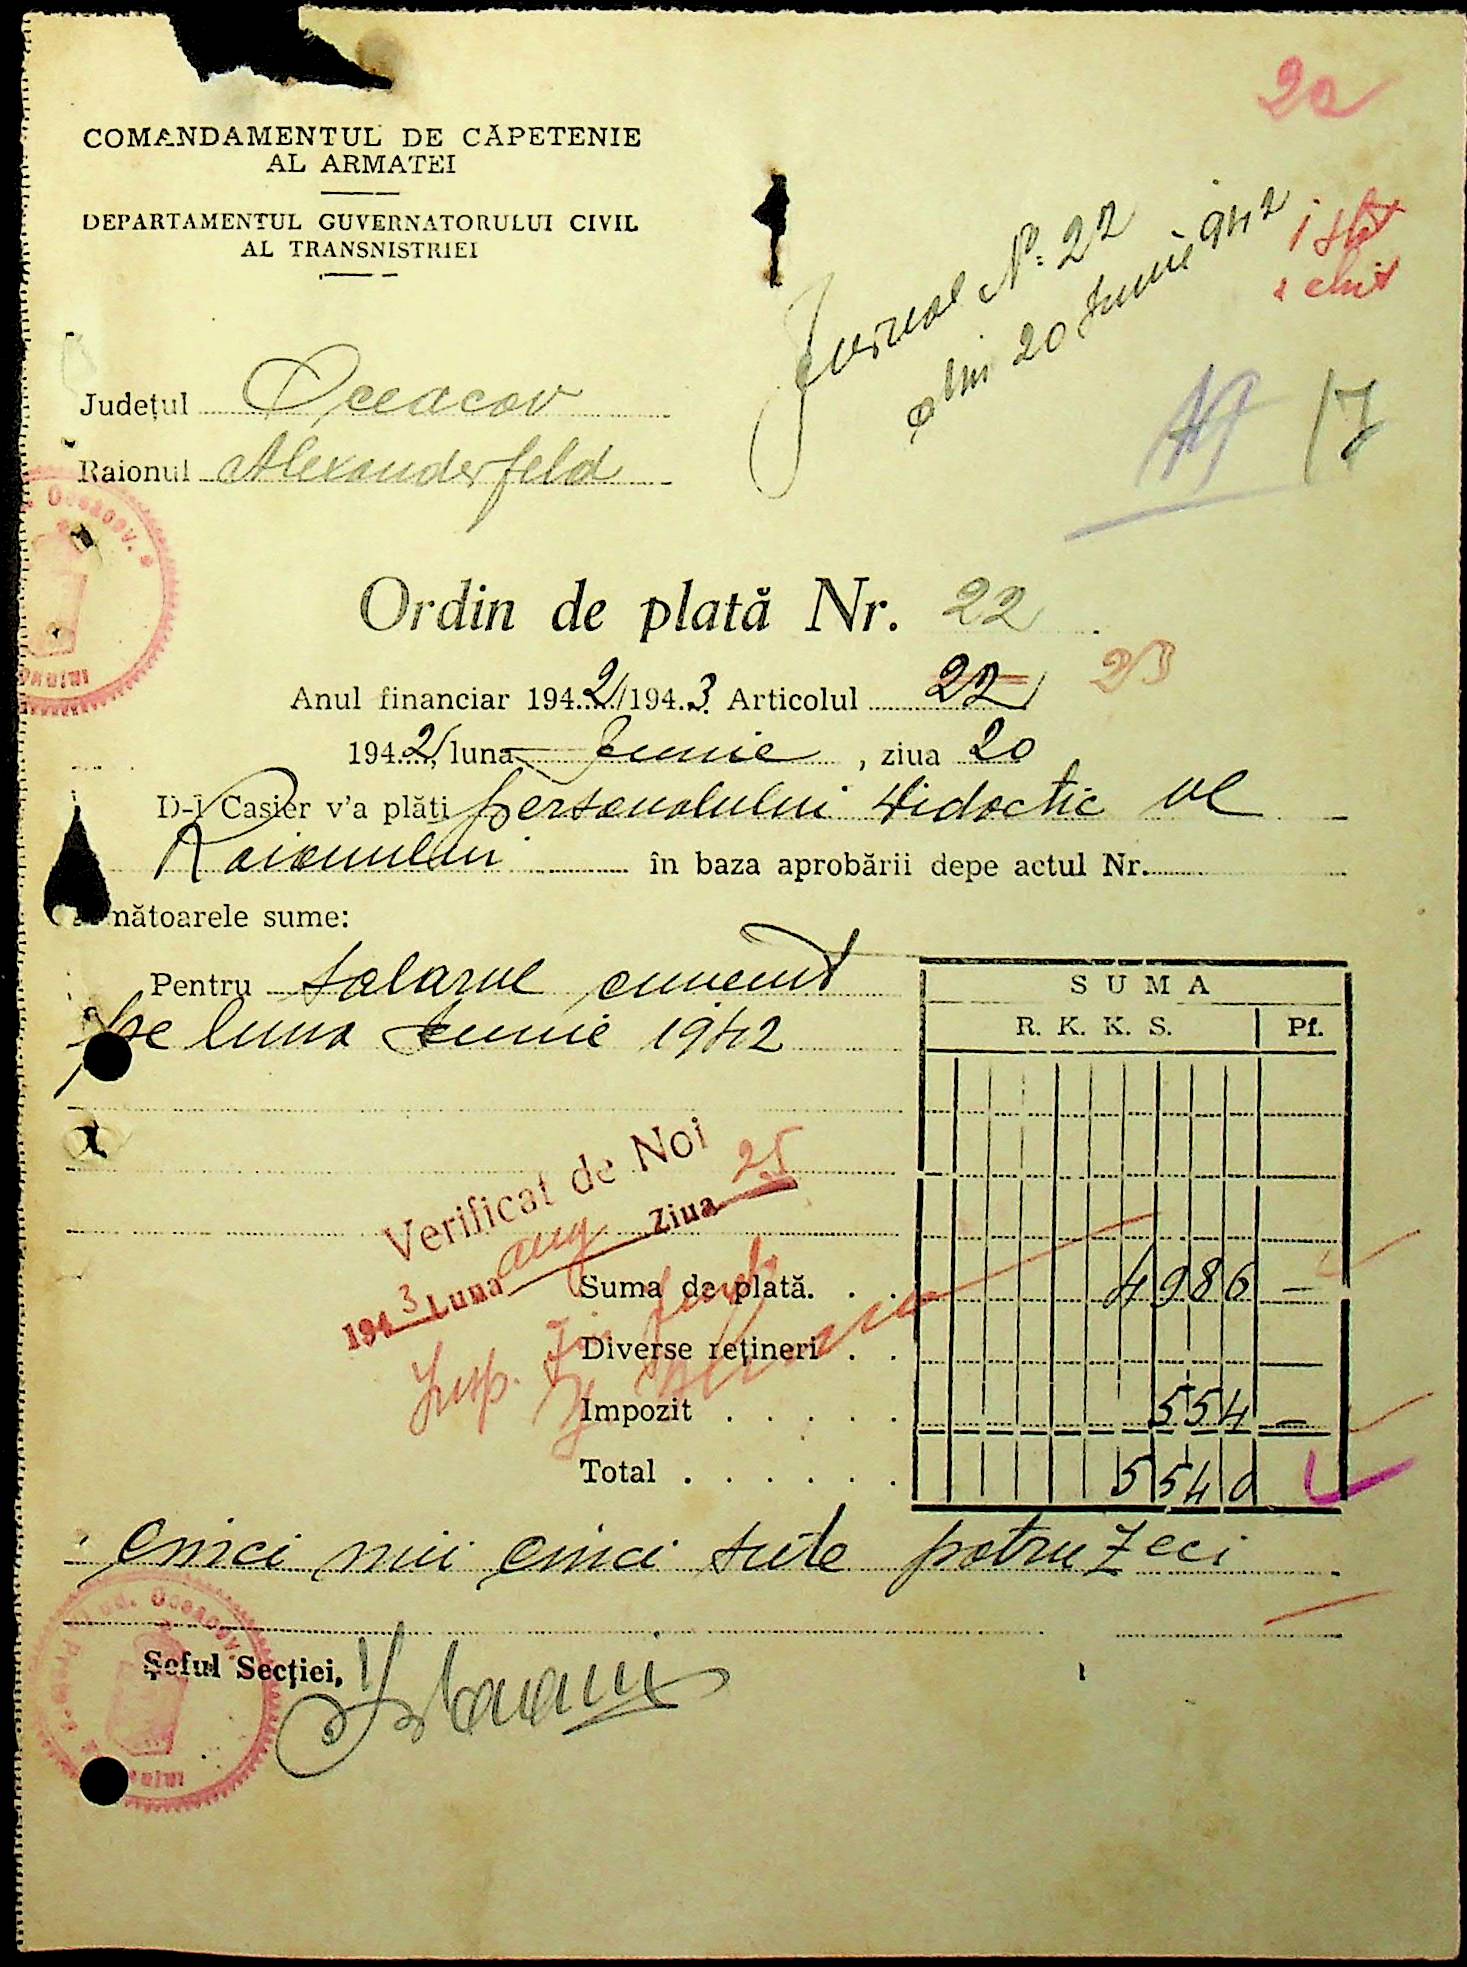 22
COMANDAMENTUL DE CĂPETENIE
AL ARMATEI
DEPARTAMENTUL GUVERNATORULUI CIVIL
AL TRANSNISTRIEI
Jurnal No. 22
din 20 Iunie 942
1 st
1 chit
17
Județul Oceacov
Raionul Alexanderfeld
Ordin de plată Nr. 22
Anul financiar 1942/1943 Articolul 22 23
1942, luna Iunie, ziua 20
D-l Casier v'a plăti personalului didactic al
Raionului în baza aprobării depe actul Nr.
următoarele sume:
Pentru salarul cuvenit
pe luna Iunie 1942
SUMA
R. K. K. S. Pf.
Verificat de Noi
1943 Luna aug Ziua 25
Insp. Fin
Suma de plată. . . 4986 —
Diverse rețineri . . —
Impozit . . . . . 554 —
Total . . . . . . 5540
Cinci mii cinci sute patruzeci
Șeful Secției,
Jud. Oceacov.